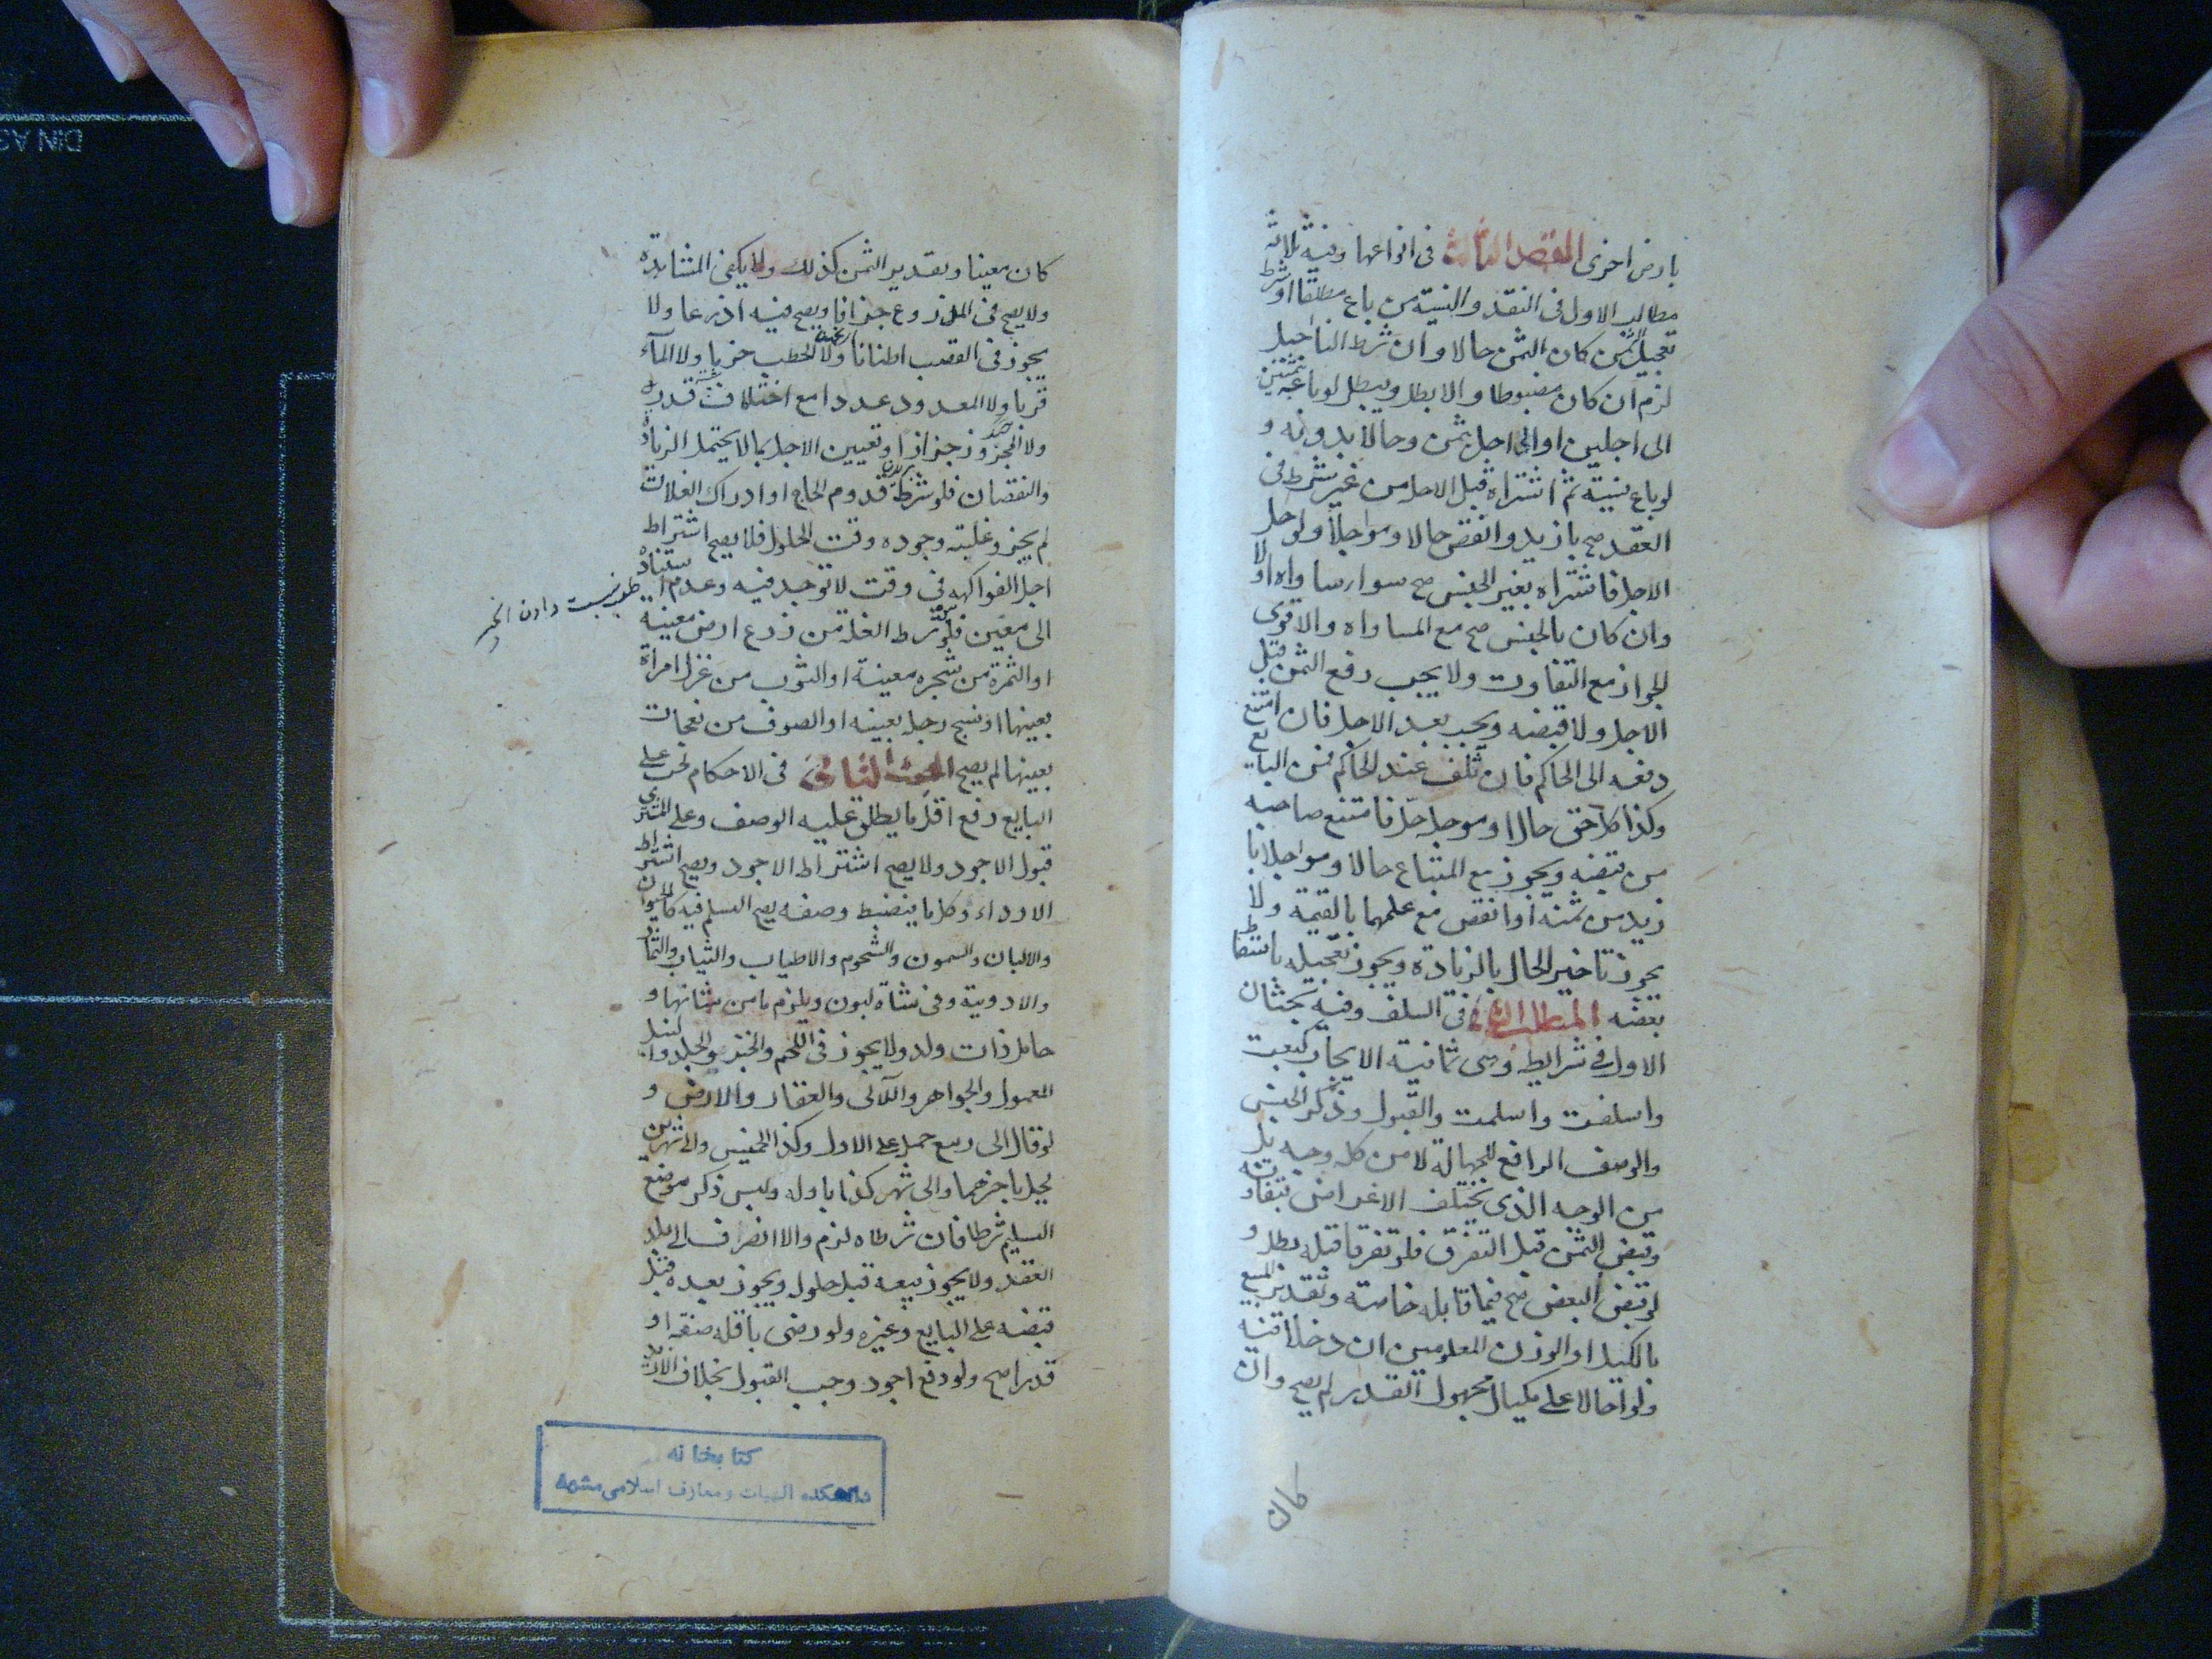 بارض اخرى الفصل الثالث فى انواعها وفيه ثلاثة
مطالب الاول فى النقد والنسية من باع مطلقا او شرط
تعجيل الثمن كان الثمن حالا وان شرط التاجيل
لزم ان كان مضبوطا والا بطل ويبطل لو باعه بثمنين
الى اجلين او الى اجل بثمن وحالا بدونه و
لو باع نسية ثم اشتراه قبل الاجل من غير شرط فى
العقد صح بازيد وانقص حالا ومواجلا ولو حل
الاجل فاشتراه بغير الجنس صح سوا ساواه او لا
وان كان بالجنس صح مع المساواه والاقوى
الجواز مع التفاوت ولا يجب دفع الثمن قبل
الاجل ولا قبضه ويجب بعد الاجل فان امتنع
دفعه الى الحاكم فان تلف عند الحاكم فمن البايع
وكذا كل حق حال او موجل حل فامتنع صاحبه
من قبضه ويجوز بيع المتباع حالا ومواجلا با
زيد من ثمنه او انقص مع علمهما بالقيمة ولا
يجوز تاخير الحال بالزيادة ويجوز تعجيله باسقاط
بعضه المطلب الثانى فى السلف وفيه بحثان
الاول فى شرايطه وهى ثمانية الايجاب كبعت
واسلفت واسلمت والقبول وذكر الجنس
والوصف الرافع للجهالة لا من كل وجه بل
من الوجه الذى يختلف الاغراض بتفاوته
وقبض الثمن قبل التفرق فلو تفرقا قبله بطل و
لو قبض البعض صح فيما قابله خاصة وتقدير المبيع
بالكيل او الوزن المعلومين ان دخلا فيه
ولو احالا على مكيال مجهول القدر لم يصح وان
كان
كان معينا وتقدير الثمن كذلك ولا يكفى المشاهدة
ولا يصح فى المذروع جزافا ويصح فيه اذرعا ولا
يجوز فى القصب اطنانا ولا الحطب حزما ولا المآء
قربا ولا المعدود عددا مع اختلاف قدره
ولا المجزوز جززا وتعيين الاجل بما لا يحتمل الزيادة
والنقصان فلو شرط قدوم الحاج او ادراك الغلات
لم يجز وغلبة وجوده وقت الحلول فلا يصح اشتراط
اجل الفواكه فى وقت لا توجد فيه وعدم استناده
الى معين فلو شرط الغلة من زرع ارض معينة
او الثمرة من شجره معينة او الثوب من غزل امراة
بعينها او نسج رجل بعينه او الصوف من نعجات
بعينها لم يصح البحث الثانى فى الاحكام يجب على
البايع دفع اقل ما يطلق عليه الوصف وعلى المشترى
قبول الاجود ولا يصح اشتراط الاجود ويصح اشتراط
الارداء وكل ما ينضبط وصفه يصح السلم فيه كالحيوان
والالبان والسمون والشحوم والاطياب والثياب والثمار
والادوية وفى شاة لبون ويلزم ما من شانها و
حامل وذات ولد ولا يجوز فى اللحم والخبز والجلد والنبل
المعمول والجواهر واللآلى والعقار والارض و
لو قال الى ربيع حمل على الاول وكذا الخميس والى شهرين
يحل باخرهما والى شهر كذا باوله وليس ذكر موضع
التسليم شرطا فان شرطاه لزم والا انصرف الى بلد
العقد ولا يجوز بيعه قبل حلوله ويجوز بعده قبل
قبضه على البايع وغيره ولو رضى باقله صفة او
قدرا صح ولو دفع اجود وجب القبول بخلاف الازيد
كتابخانه
دانشكده الهيات و معارف اسلامى مشهد